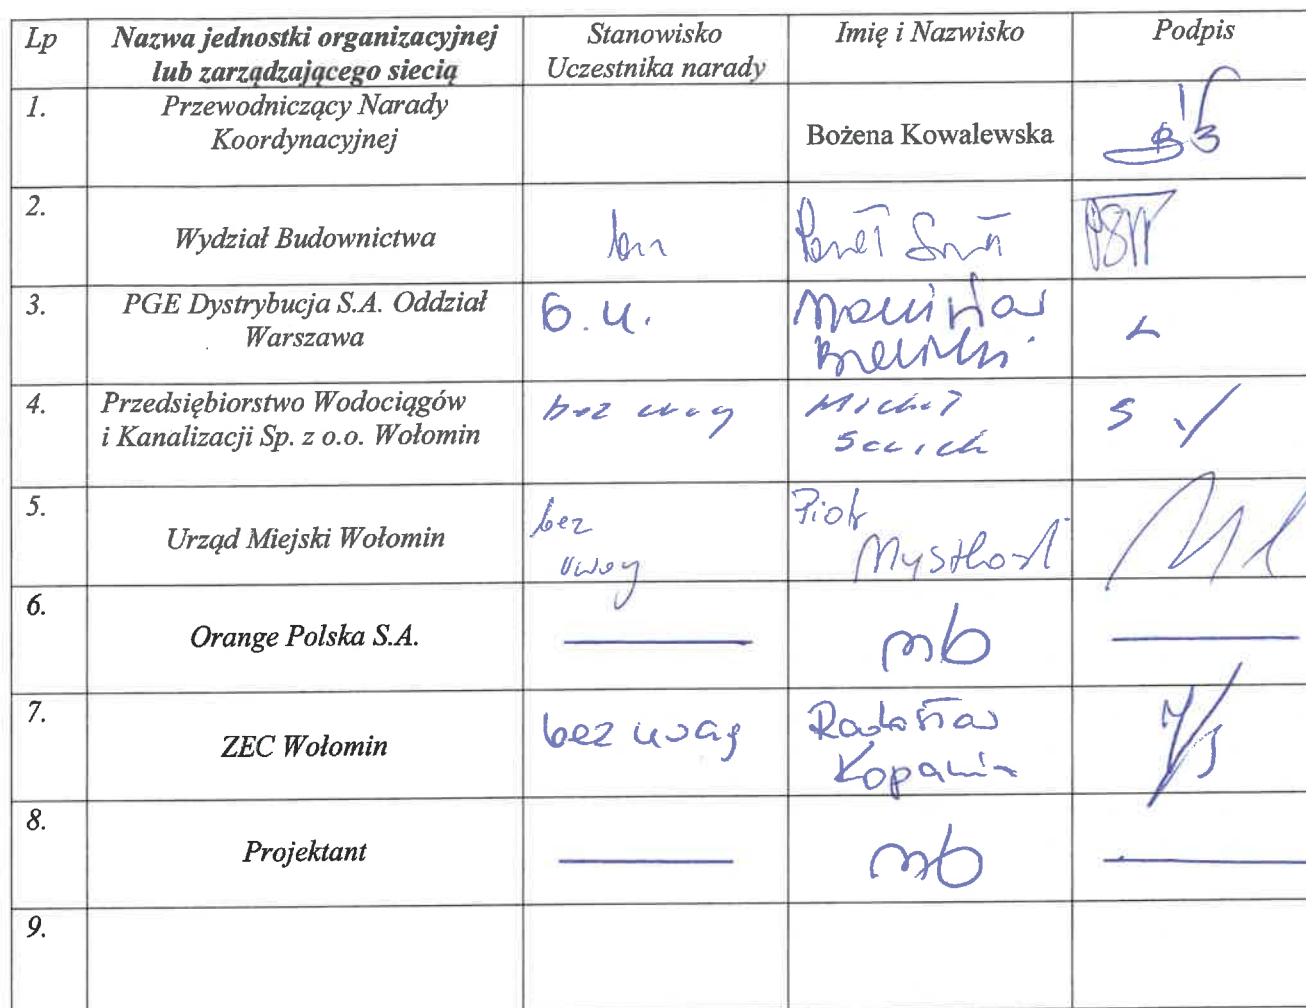 Lp
Nazwa jednostki organizacyjnej
lub zarządzającego siecią
Stanowisko
Uczestnika narady
Imię i Nazwisko
Podpis
1.
Przewodniczący Narady
Koordynacyjnej
Bożena Kowalewska
2.
Wydział Budownictwa
Paweł
3.
PGE Dystrybucja S.A. Oddział
Warszawa
б.u.
4.
Przedsiębiorstwo Wodociągów
i Kanalizacji Sp. z o.o. Wołomin
bez uwag
Michał
5.
Urząd Miejski Wołomin
bez
uwag
Piotr
6.
Orange Polska S.A.
nb
7.
ZEC Wołomin
bez uwag
Radosław
8.
Projektant
nb
9.